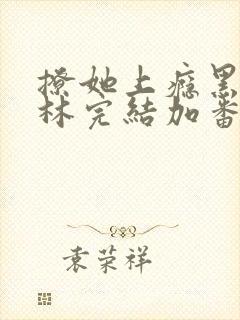 撩她上瘾黑
林完結加番
袁荣祥